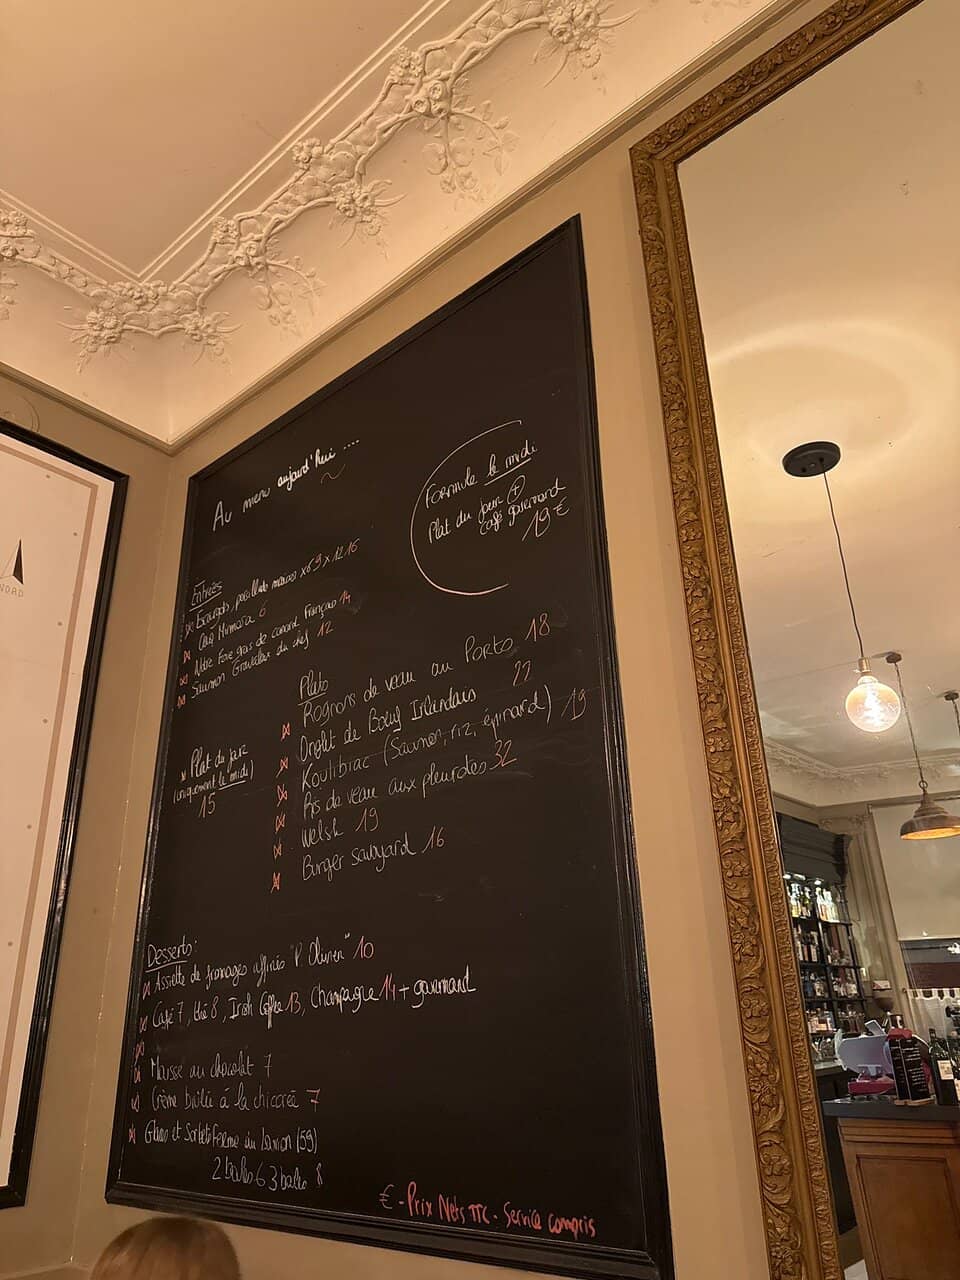 Au menu aujourd'hui ....
Formule le midi
Plat du jour +
café gourmand
19 €
Entrées
Escargots, persillade maison x6 9 x12 16
Oeuf Mimosa 6
Notre Foie gras de canard Français 14
Saumon Gravelax du chef 12
Plats
Rognons de veau au Porto 18
Onglet de Bœuf Irlandais 22
Koulibiac (Saumon, riz, épinard) 19
Ris de veau aux pleurotes 32
Welsh 19
Burger savoyard 16
Plat du jour
(uniquement le midi)
15
Desserts:
Assiette de fromages affinés "P. Olivier" 10
Café 7, thé 8, Irish Coffee 13, Champagne 14 + gourmand
Mousse au chocolat 7
Crème brûlée à la chicorée 7
Glaces et Sorbets Ferme du (59)
2 boules 6 3 boules 8
€ - Prix Nets TTC - Service compris
NORD